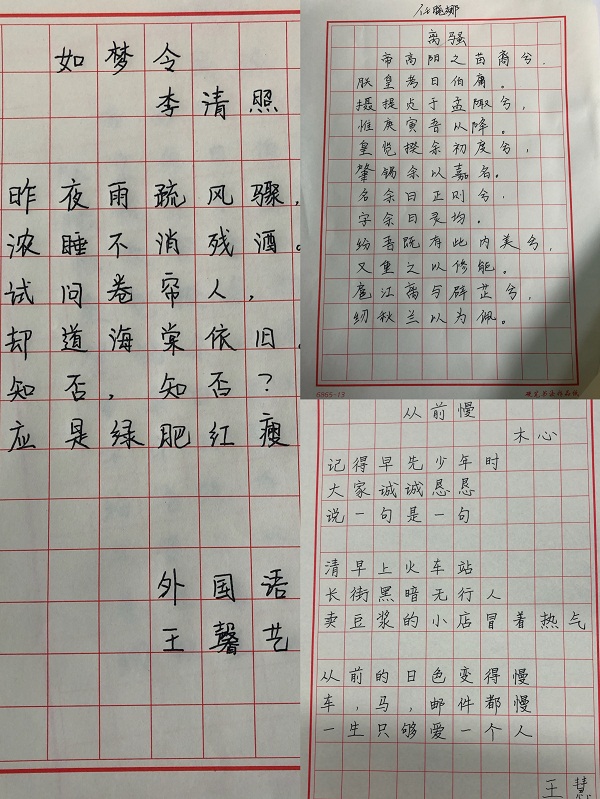 如梦令
李清照
昨夜雨疏风骤,
浓睡不消残酒。
试问卷帘人,
却道海棠依旧。
知否,知否?
应是绿肥红瘦
外国语
王馨艺
任晓娜
离骚
帝高阳之苗裔兮,
朕皇考曰伯庸。
摄提贞于孟陬兮,
惟庚寅吾以降。
皇览揆余初度兮,
肇锡余以嘉名。
名余曰正则兮,
字余曰灵均。
纷吾既有此内美兮,
又重之以修能。
扈江离与辟芷兮,
纫秋兰以为佩。
6565-13
从前慢
木心
记得早先少年时
大家诚诚恳恳
说一句是一句
清早上火车站
长街黑暗无行人
卖豆浆的小店冒着热气
从前的日色变得慢
车,马,邮件都慢
一生只够爱一个人
王慧